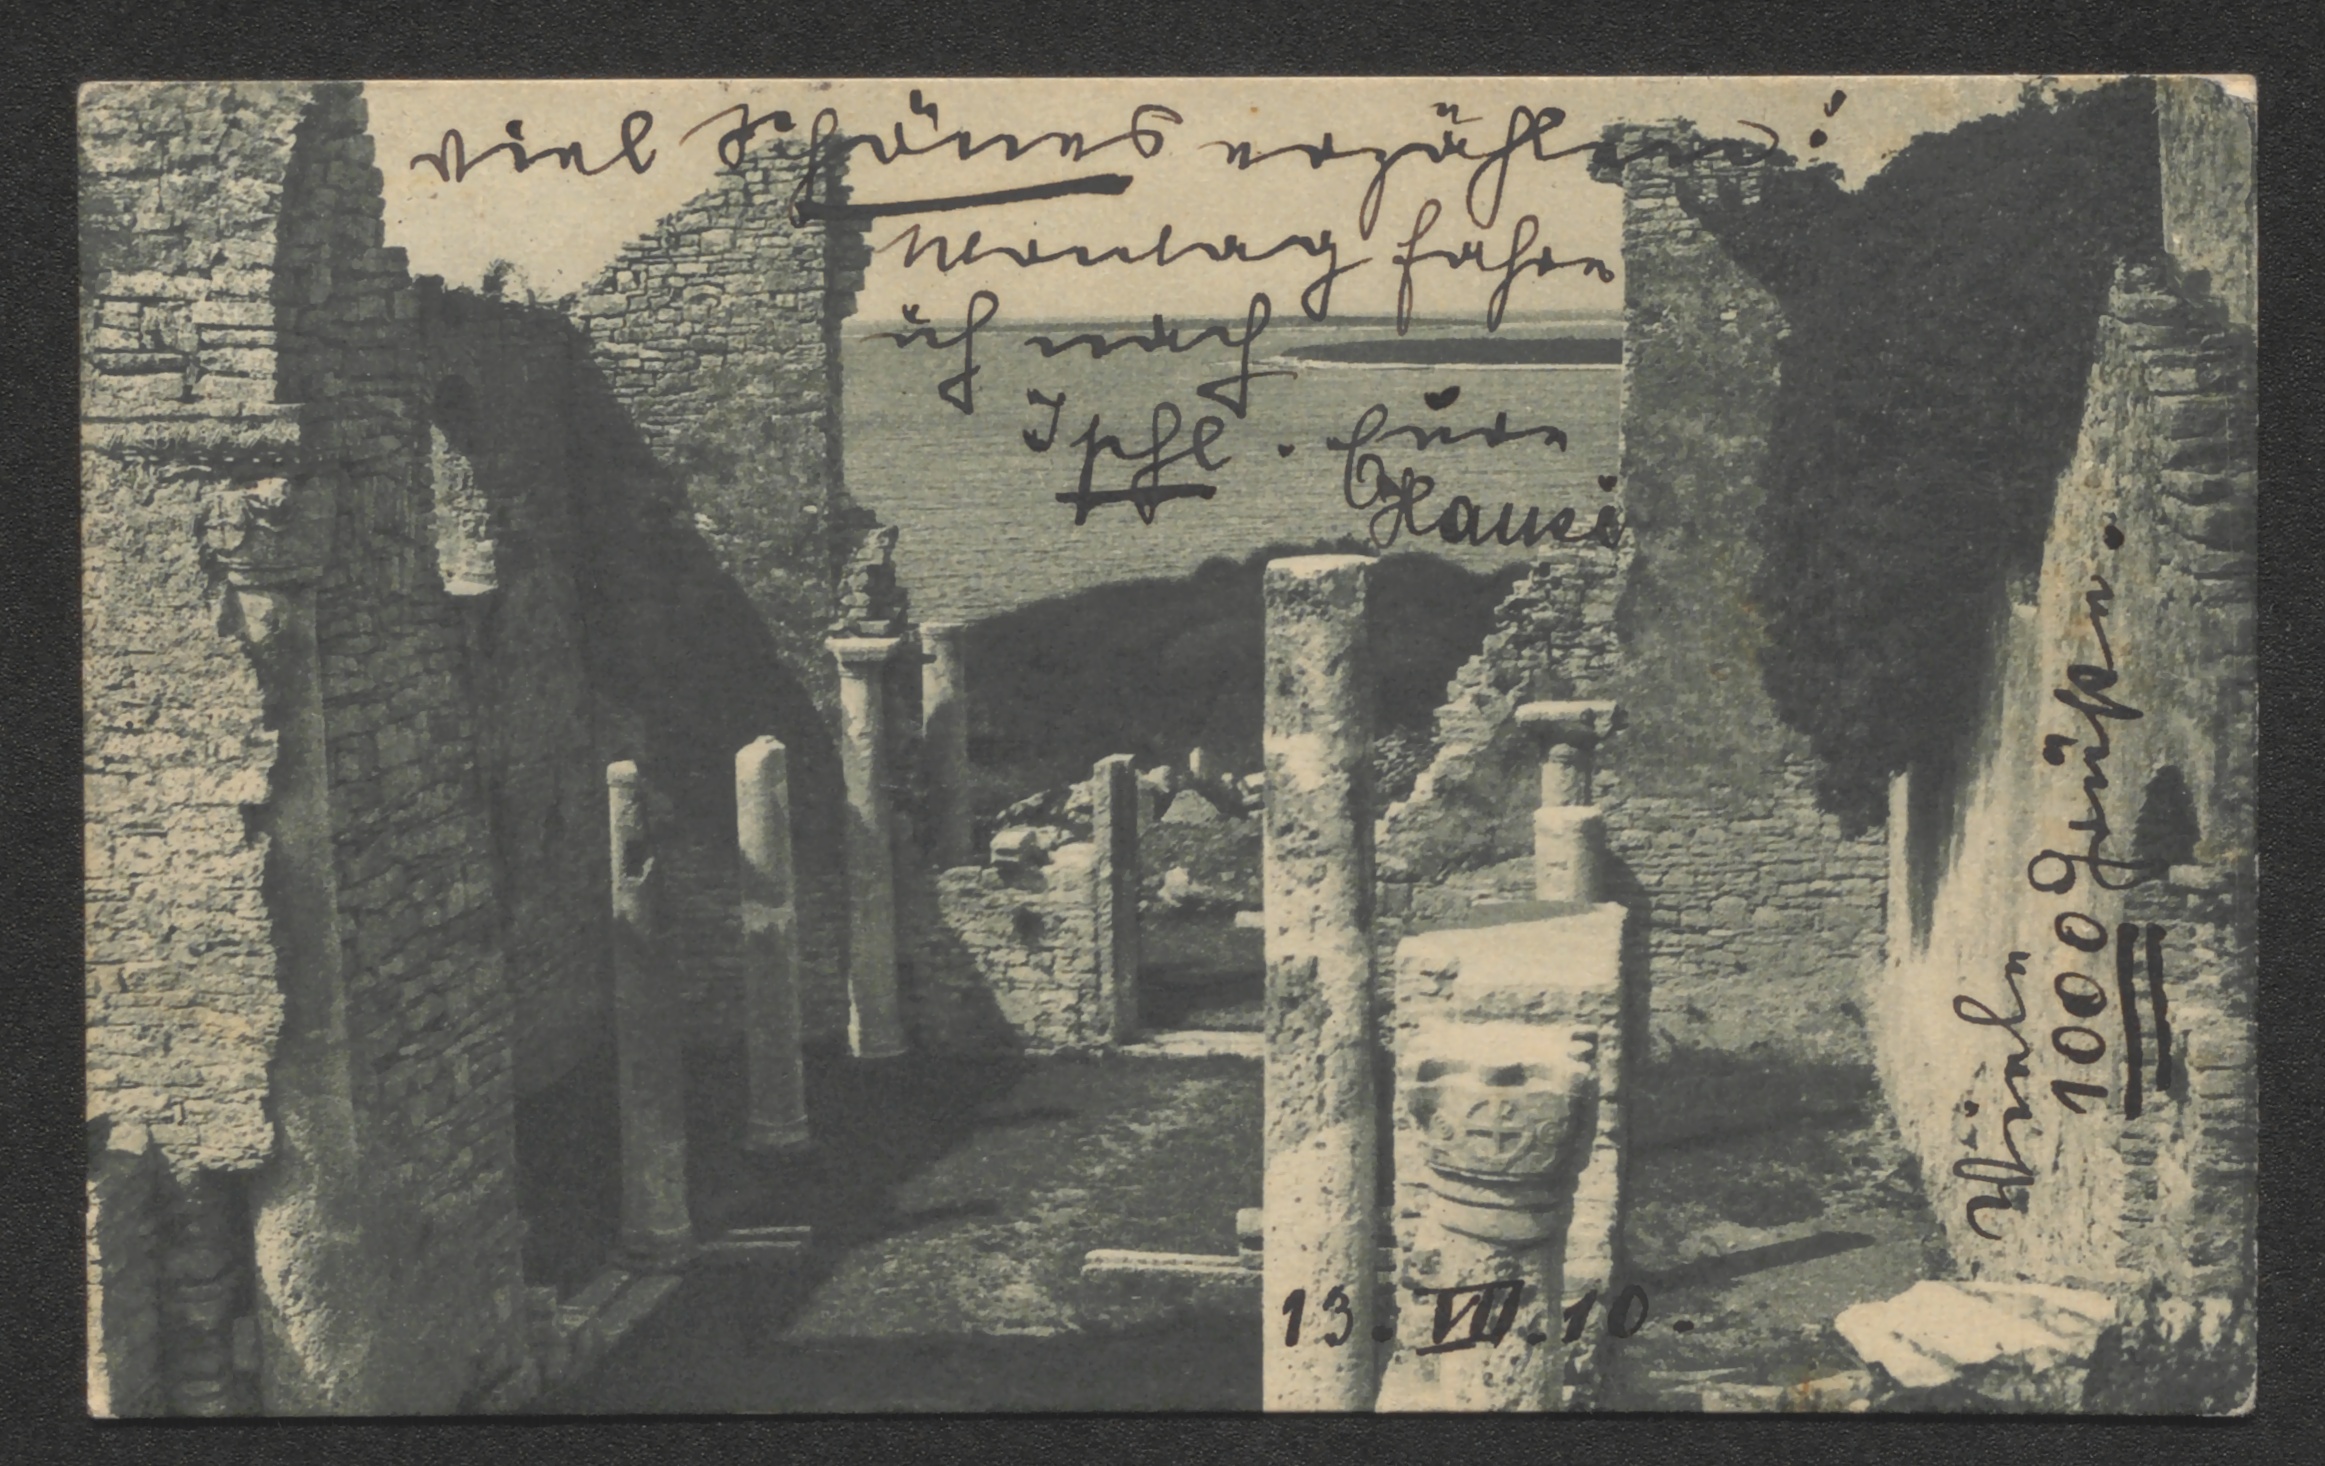 viel Schönes erzählen!
Montag fahre
ich nach
Ischl. Eure
Hansi
Viele
1000 Grüßen.
13. VII. 10.